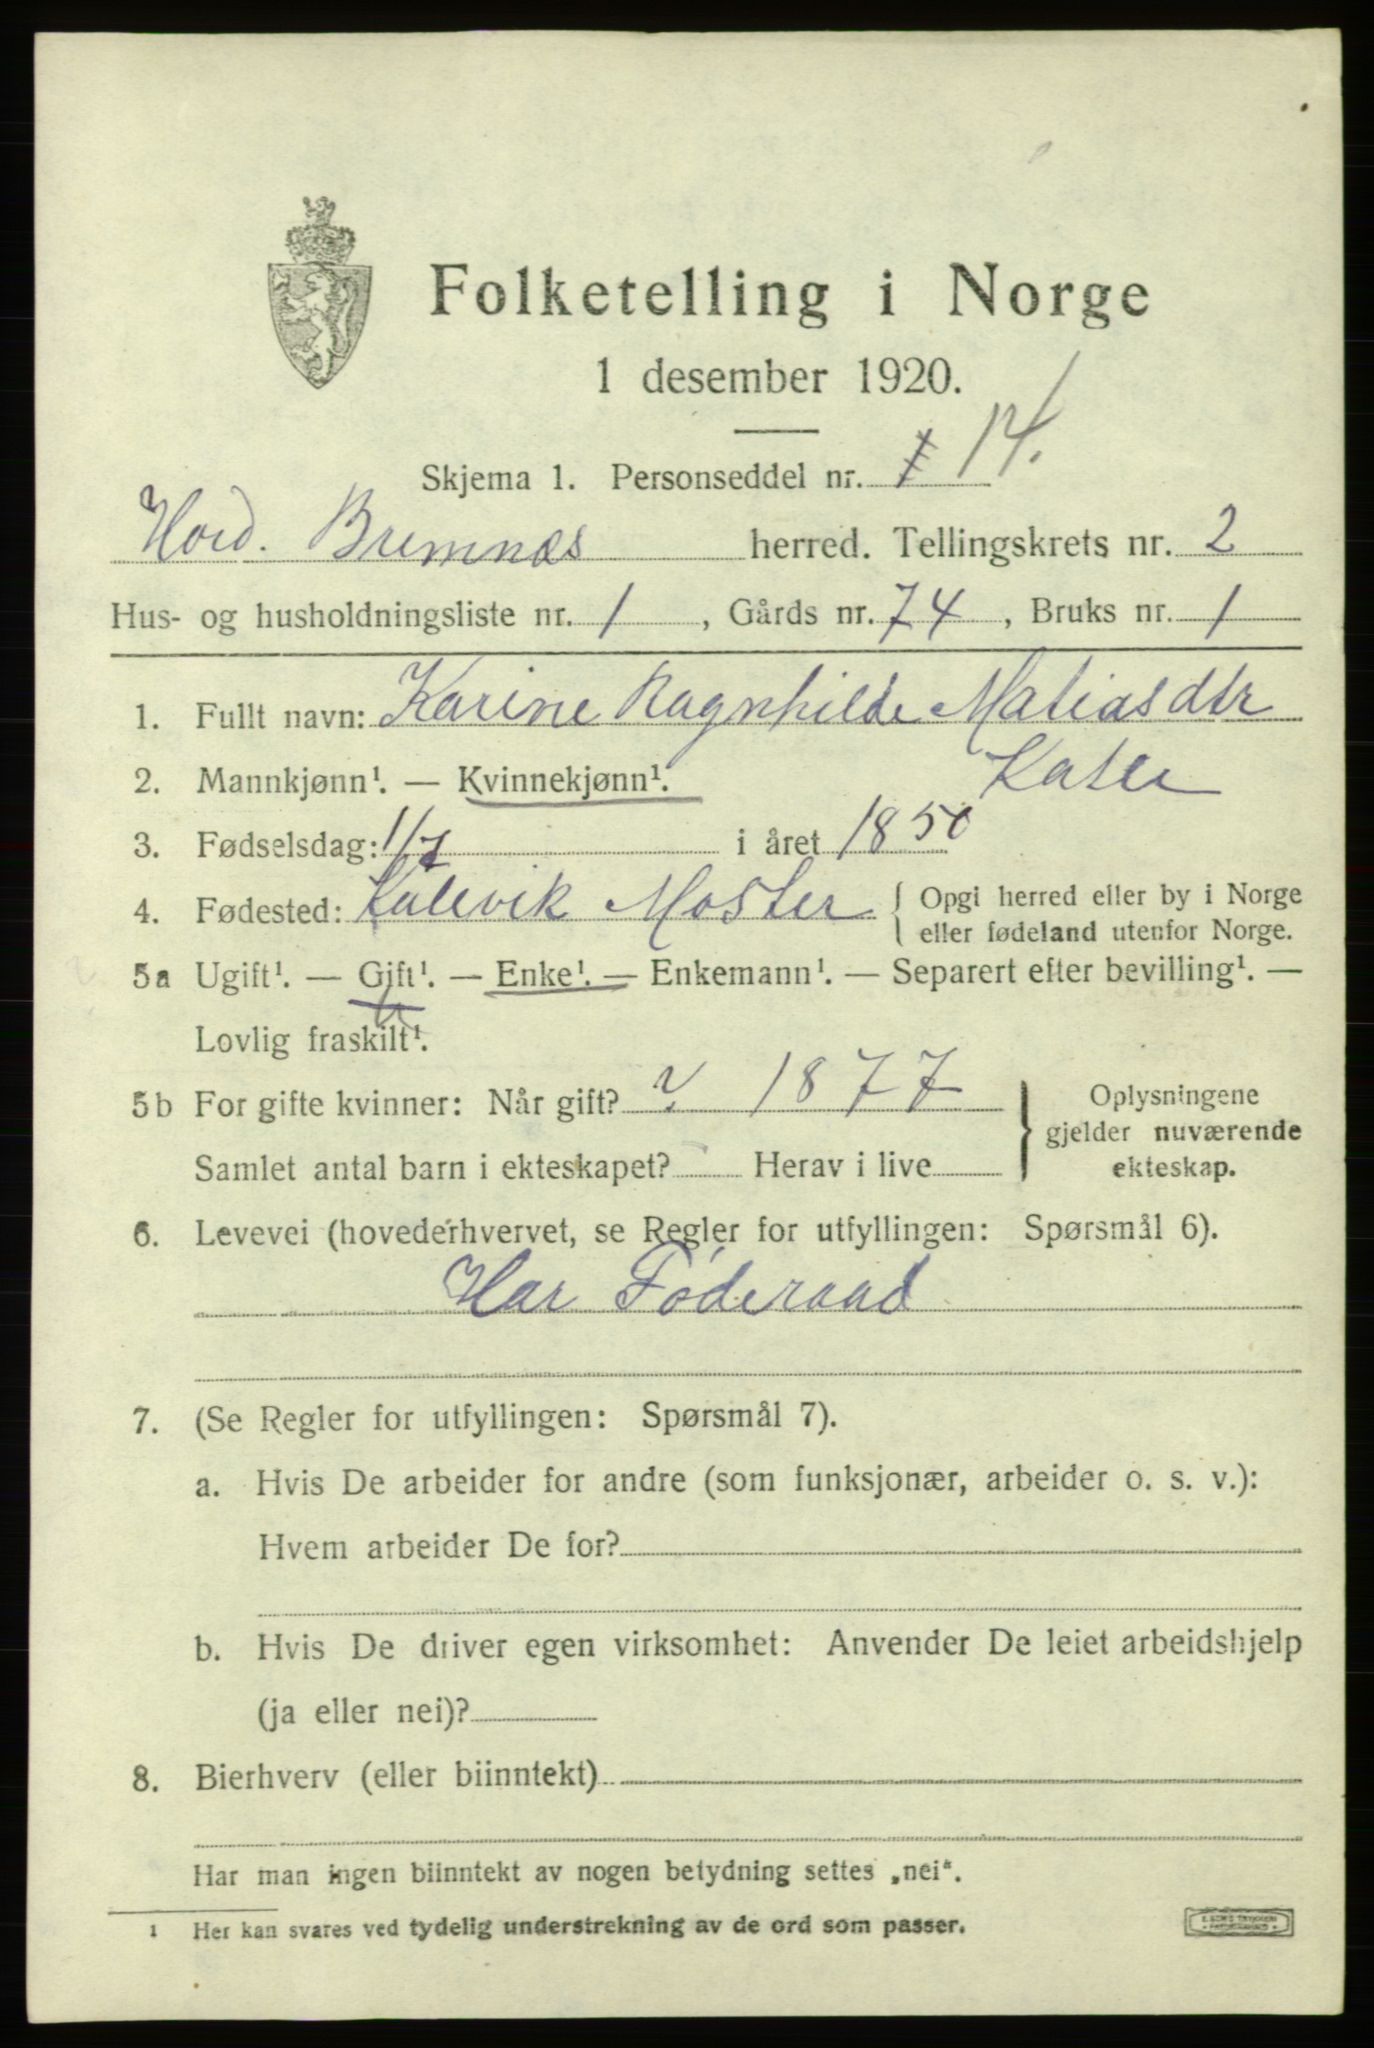 Folketelling i Norge
1 desember 1920.
Skjema 1. Personseddel nr. 14.
Hord. Bremnæs herred. Tellingskrets nr. 2
Hus- og husholdningsliste nr. 1, Gårds nr. 74, Bruks nr. 1
1. Fullt navn: Karine Ragnhilde Matiasdtr
2. Mannkjønn¹. — Kvinnekjønn¹.
3. Fødselsdag: 1/7 i året 1850
4. Fødested: Kulevik Moster { Opgi herred eller by i Norge
eller fødeland utenfor Norge.
5a Ugift¹. — Gift¹. — Enke¹. — Enkemann¹. — Separert efter bevilling¹. —
Lovlig fraskilt¹.
5b For gifte kvinner: Når gift? ? 1877
Samlet antal barn i ekteskapet? Herav i live
} Oplysningene
gjelder nuværende
ekteskap.
6. Levevei (hovederhvervet, se Regler for utfyllingen: Spørsmål 6).
Har Føderaad
7. (Se Regler for utfyllingen: Spørsmål 7).
a. Hvis De arbeider for andre (som funksjonær, arbeider o. s. v.):
Hvem arbeider De for?
b. Hvis De driver egen virksomhet: Anvender De leiet arbeidshjelp
(ja eller nei)?
8. Bierhverv (eller biinntekt)
Har man ingen biinntekt av nogen betydning settes „nei“.
¹ Her kan svares ved tydelig understrekning av de ord som passer.